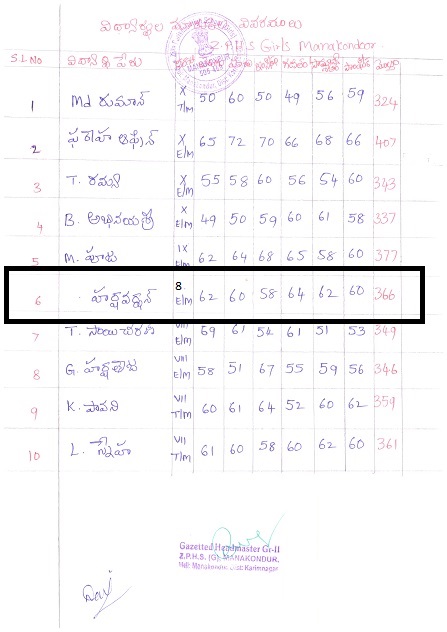 విద్యార్థుల వివరములు
Z.P.H.S Girls Manakondoor
S.L.No విద్యార్థి పేరు
1 Md రుమాన్ X T/M 50 60 50 49 56 59 324
2 ఫరాహ ఆఫ్రీన్ X E/M 65 72 70 66 68 66 407
3 T. రమ్య X E/M 55 58 60 56 54 60 343
4 B. అభినయశ్రీ X E/M 49 50 59 60 61 58 337
5 M. పూజ IX E/M 62 64 68 65 58 60 377
6 హర్షవర్ధన్ 8 E/M 62 60 58 64 62 60 366
7 T. సాయిచరణ్ VIII E/M 69 61 54 61 51 53 349
8 G. హర్షత VIII E/M 58 51 67 55 59 56 346
9 K. పావని VII T/M 60 61 64 52 60 62 359
10 L. స్నేహ VII T/M 61 60 58 60 62 60 361
Gazetted Headmaster Gr-II
Z.P.H.S. (G), MANAKONDUR,
Mdl: Manakondur, Dist: Karimnagar